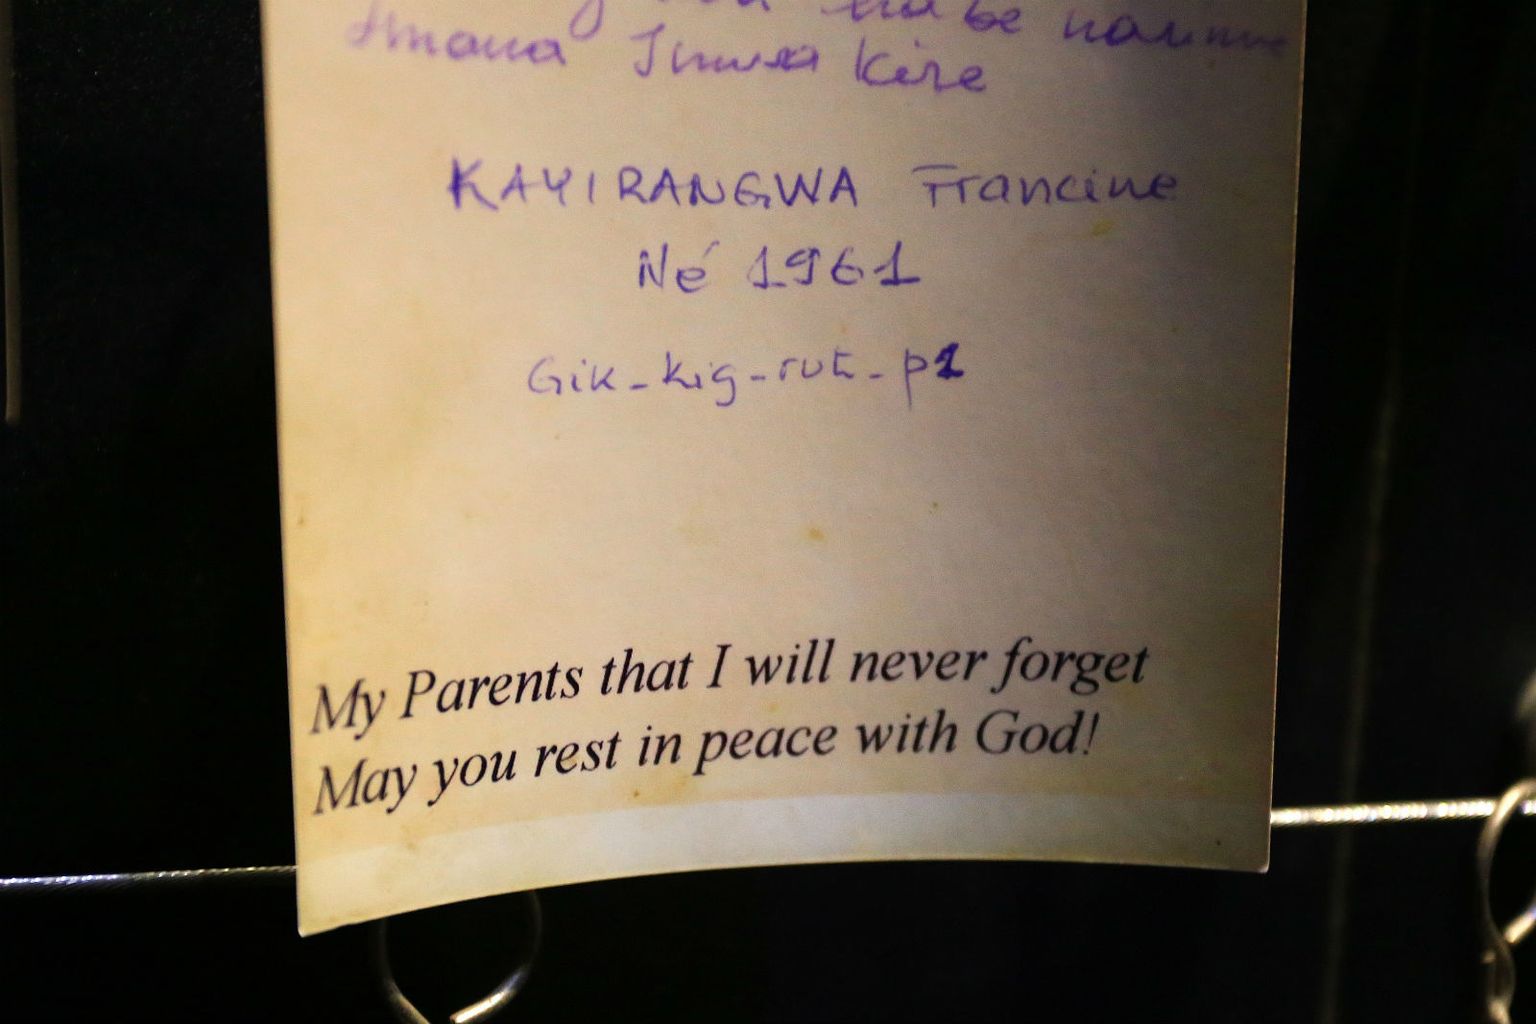 be
Imana
KAYIRANGWA Francine
Né 1961
Gik-kig-rut-p1
My Parents that I will never forget
May you rest in peace with God!